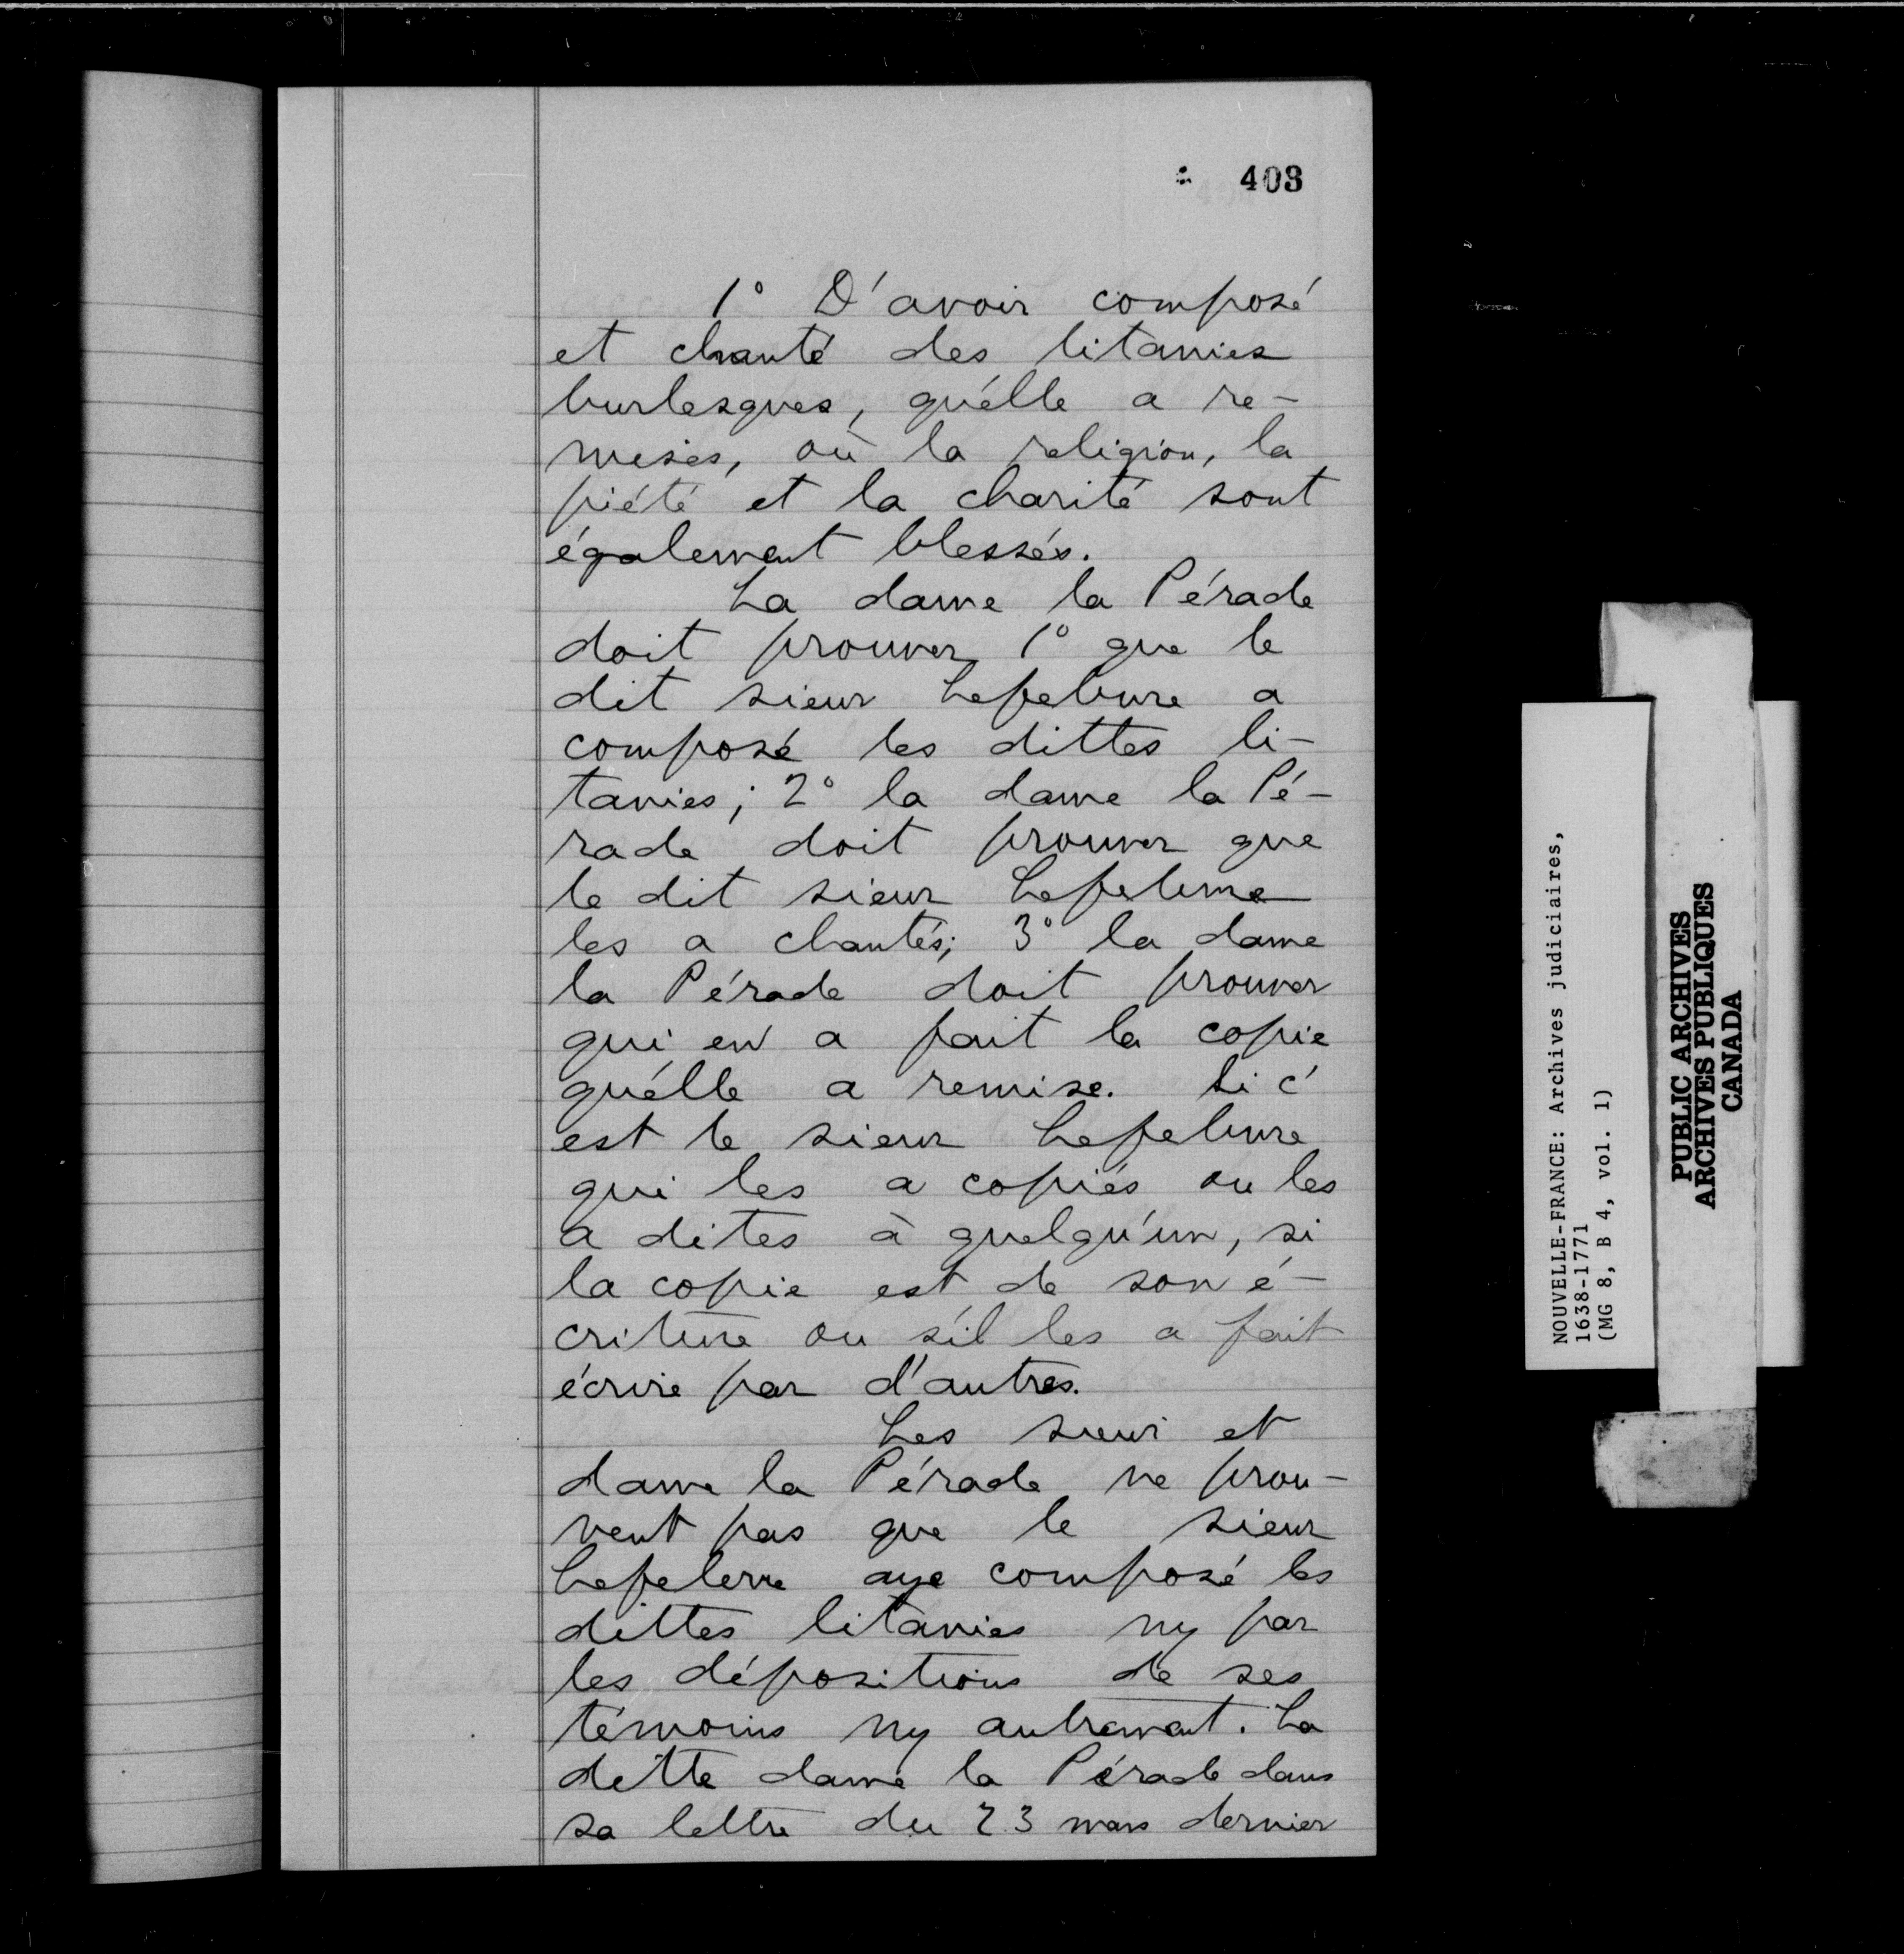 403
1° D'avoir composé
et chanté des litanies
burlesques, qu'élle a re-
mises, où la religion, la
piété et la charité sont
également blessés.
La dame la Pérade
doit prouver 1° que le
dit sieur Lefebvre a
composé les dittes li-
tanies; 2° la dame la Pé-
rade doit prouver que
le dit sieur Lefebvre
les a chantés; 3° la dame
la Pérade doit prouver
qui en a fait la copie
qu'élle a remise. Si c'
est le sieur Lefebvre
qui les a copiés ou les
a dites à quelqu'un, si
la copie est de son é-
criture ou s'il les a fait
écrire par d'autres.
Les sieur et
dame la Pérade ne prou-
vent pas que le sieur
Lefebvre aye composé les
dittes litanies ny par
les dépositions de ses
témoins ny autrement. La
ditte dame la Pérade dans
sa lettre du 23 mars dernier
NOUVELLE-FRANCE: Archives judiciaires,
1638-1771
(MG 8, B 4, vol. 1)
PUBLIC ARCHIVES
ARCHIVES PUBLIQUES
CANADA